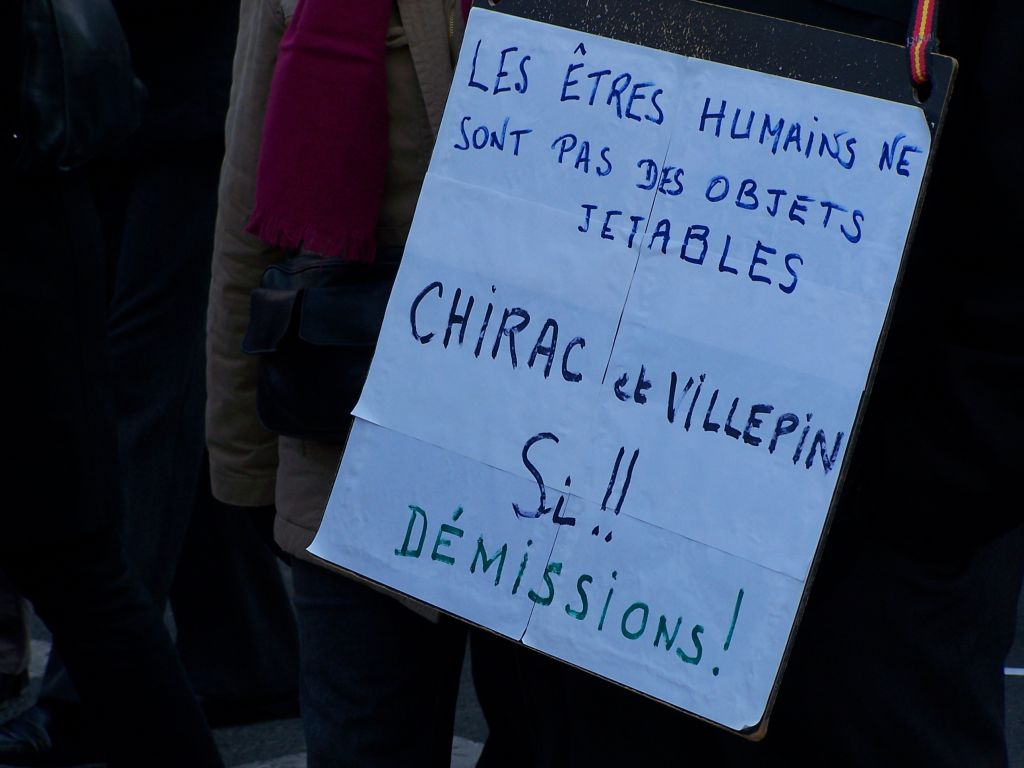 LES ÊTRES HUMAINS NE
SONT PAS DES OBJETS
JETABLES
CHIRAC et VILLEPIN
Si !!
DÉMISSIONS !